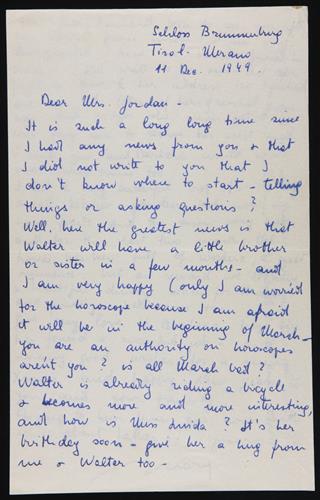 Schloss Brunnenburg
Tirol. Merano
11 Dec. 1949.
Dear Mrs. Jordan -
It is such a long long time since
I had any news from you & that
I did not write to you that I
don't know where to start - telling
things or asking questions?
Well, here the greatest news is that
Walter will have a little brother
or sister in a few months - and
I am very happy (only I am worried
for the horoscope because I am afraid
it will be in the beginning of March -
you are an authority on horoscopes
aren't you? is all March bad?
Walter is already riding a bicycle
& becomes more and more interesting,
and how is Miss Linida? It's her
birthday soon - give her a hug from
me & Walter too -